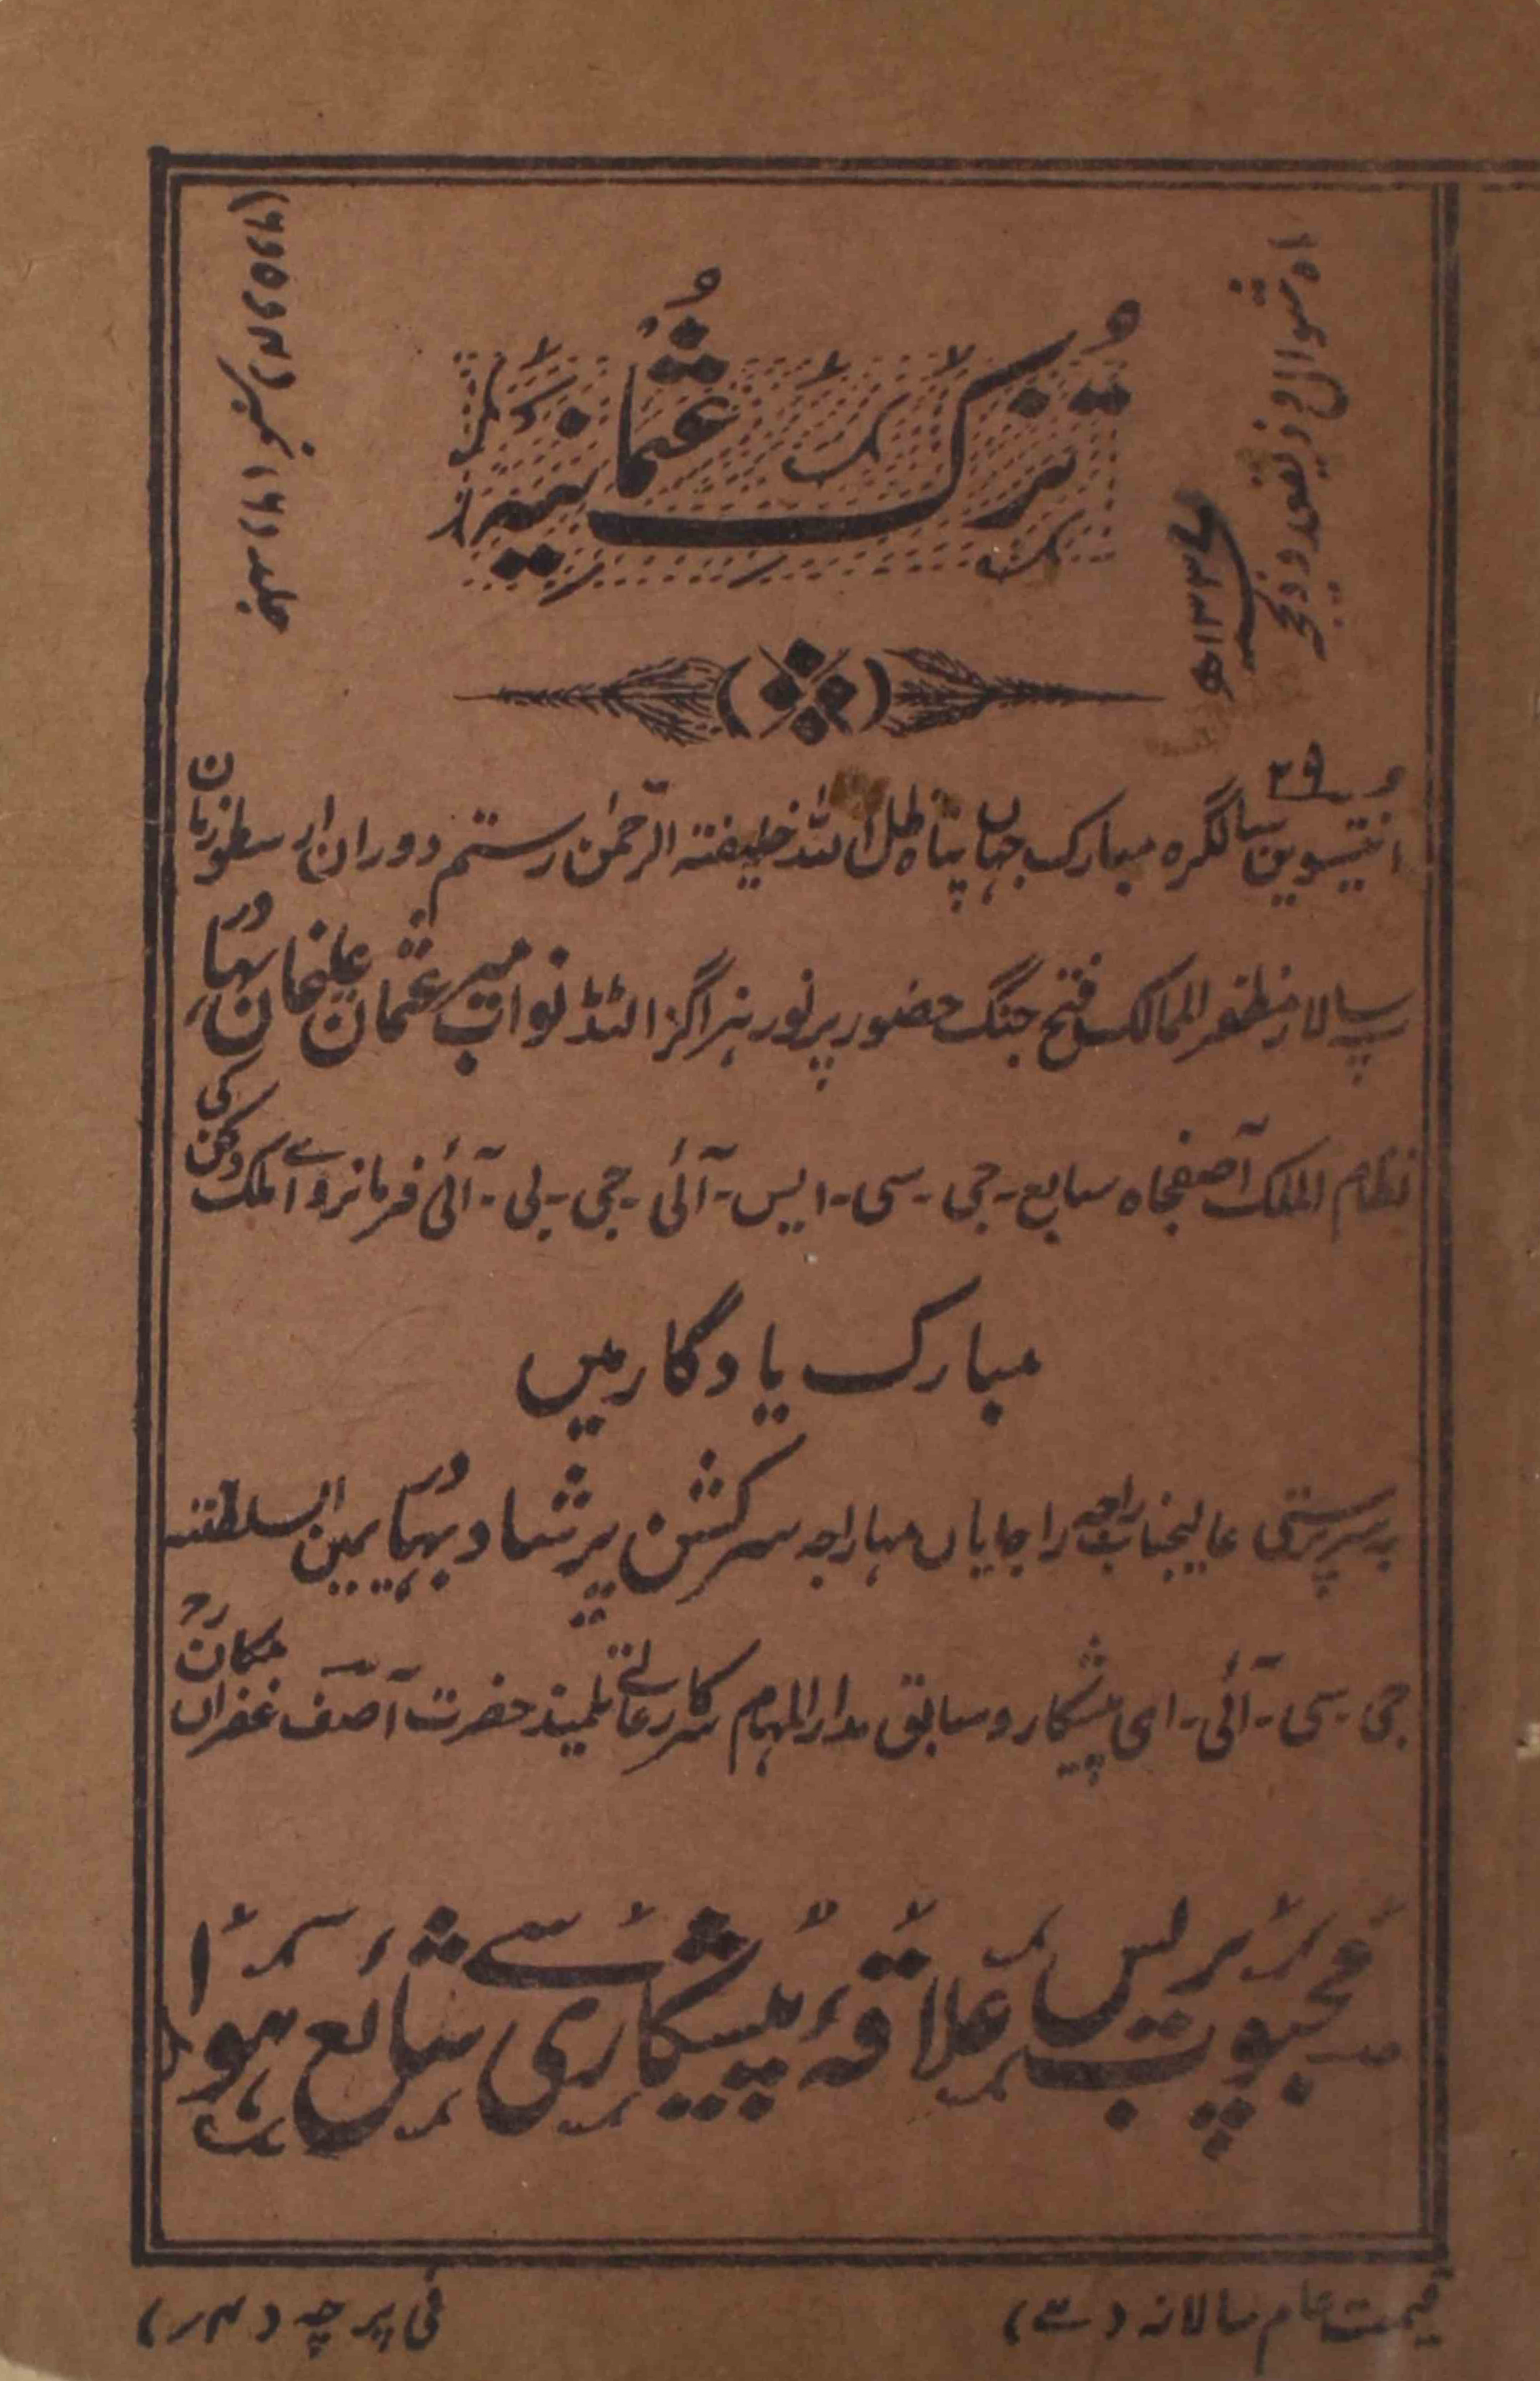 ماہ شوال و ذیقعدہ و ذیحجہ
۱۳۳۲ھ
جلد (۲) نمبر (۴ و ۵ و ۶)
تزک عثمانیہ
۲۹
انتیسویں سالگرہ مبارک جہاں پناہ ظل اللہ خلیفتہ الرحمٰن رستم دوران ارسطوزمان
سپہ سالار مظفر الممالک فتح جنگ حضور پرنور ہزاگزالٹڈ نواب میر عثمان علیخان بہادر
نظام الملک آصفجاہ سابع - جی - سی - ایس - آئی - جی - بی - آئی فرمانروائے ملک دکن کی
مبارک یادگار میں
بہ سرپرستی عالیجناب راجہ راجایاں مہاراجہ سرکشن پرشاد بہادر یمین السلطنتہ
جی - سی - آئی - ای پیشکار و سابق مدارالمہام سرکارعالی تلمیذ حضرت آصف غفراں مکان رح
محبوب پریس علاقہ پیشکاری سے شائع ہوا
قیمت عام سالانہ
فی پرچہ (۴؍)